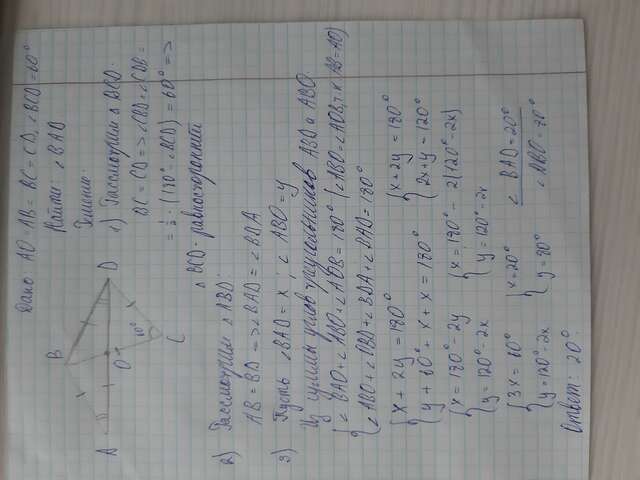 Дано: AO = AB = BC = CD, ∠BCD = 60°
Найти: ∠BAD
Решение:
1) Рассмотрим △ BCD:
BC = CD => ∠CBD = ∠CDB =
= 1/2 · (180° - ∠BCD) = 60° =>
△ BCD - равносторонний
B
A
O
D
60°
C
2) Рассмотрим △ ABD:
AB = BD => ∠BAD = ∠BDA
3) Пусть ∠BAD = x, ∠ABO = y
Из суммы углов треугольников ABD и ABO:
{ ∠BAO + ∠ABO + ∠AOB = 180° (∠ABO = ∠AOB, т.к AB = AO)
{ ∠ABO + ∠OBD + ∠BDA + ∠BAD = 180°
{ x + 2y = 180°
{ y + 60° + x + x = 180°
{ x + 2y = 180°
{ 2x + y = 120°
{ x = 180° - 2y
{ y = 120° - 2x
{ x = 180° - 2(120° - 2x)
{ y = 120° - 2x
{ 3x = 60°
{ y = 120° - 2x
{ x = 20°
{ y = 80°
∠ BAD = 20°
∠ ABO = 80°
Ответ: 20°.